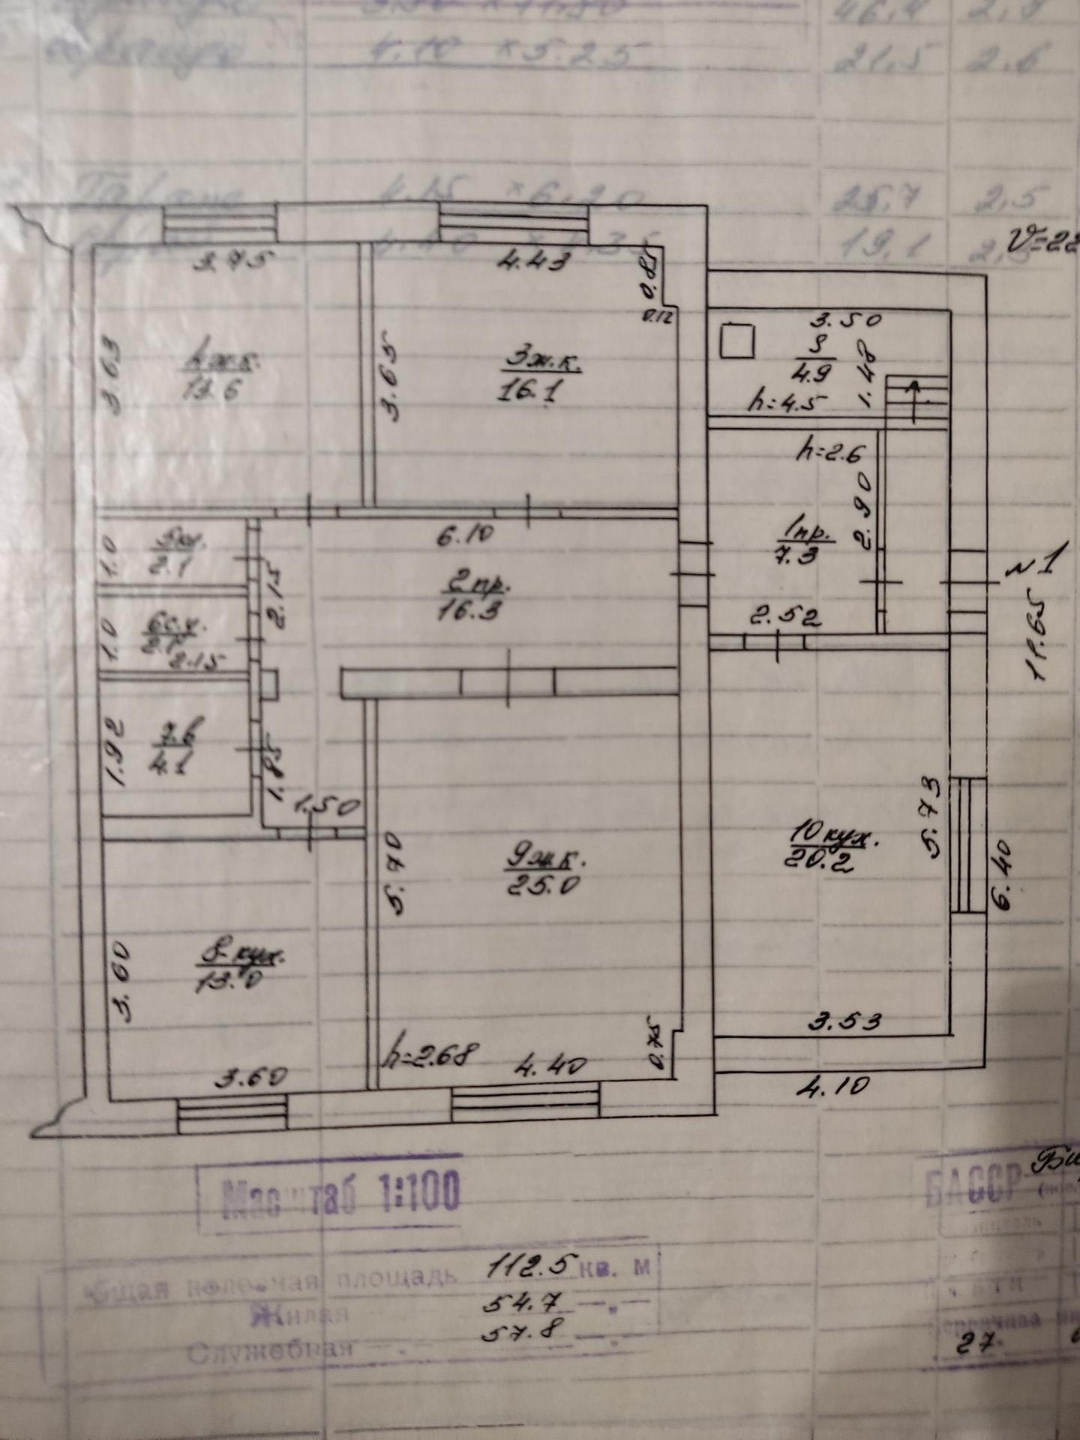 46,4 2,9
4.10 ×5.25 21,5 2.6
Гараж 4.15 ×6,20 25,7 2,5
19,1
3.75
4.43
0.85
0.12
3.63
4 ж.к.
13.6
3.65
3ж.к.
16.1
3.50
4.9
1.48
h=4.5
h=2.6
2.90
1пр.
7.3
2.52
N1
11.65
6.10
2 пр.
16.3
1.0
2.1
2.15
1.0
2.15
1.92
4.1
1.85
1.50
5.70
9ж.к.
25.0
10 кух.
20.2
5.73
6.40
3.60
8-кух.
13.0
3.60
h=2.68
4.40
0.75
3.53
4.10
Масштаб 1:100
БАССР
площадь 112.5 кв. м
Жилая 54.7 —„—
Служебная 57.8
27.